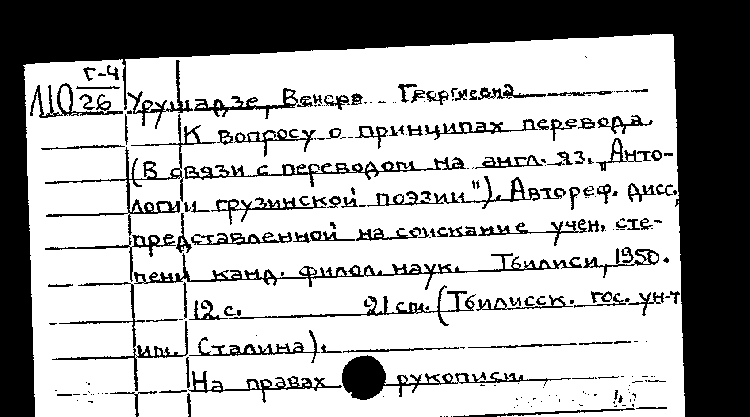 Г-4
110/26 Урушадзе, Венера Георгиевна
К вопросу о принципах перевода.
(В связи с переводом на англ. яз. „Анто-
логии грузинской поэзии"). Автореф. дисс.,
представленной на соискание учен. сте-
пени канд. филол. наук. Тбилиси, 1950.
12 с. 21 см. (Тбилисск. гос. ун-т
им. Сталина).
На правах рукописи.